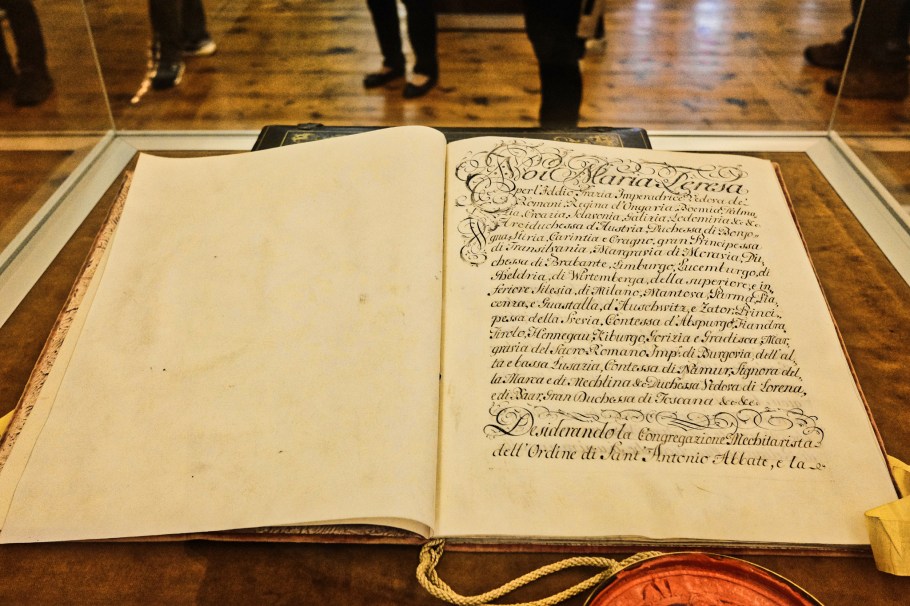 Noi Maria Teresa
per l'Iddio Grazia Imperadrice Vedova de'
Romani, Regina d'Ongaria, Boemia, Dalma,
zia, Croazia, Schiavonia, Galizia, Lodomiria &c &c
Arciduchessa d'Austria, Duchessa di Borgo,
gna, Stiria, Carintia e Cragno, gran Principessa
di Transilvania, Margravia di Moravia, Du,
chessa di Brabante, Limburgo, Lucemburgo, di
Gheldria, di Wirtemberga, della superiore, e in,
feriore Silesia, di Milano, Mantova, Parma, Pia,
cenza, e Guastalla, d'Auschwitz, e Zator, Princi,
pessa della Svevia, Contessa d'Abspurgo, Fiandra,
Tirolo, Hennegau, Kiburgo, Gorizia e Gradisca, Mar,
gravia del Sacro Romano Imp.º di Burgovia, dell'al,
ta e bassa Lusazia, Contessa di Namur, Signora del,
la Marca e di Mechlina &c Duchessa Vedova di Lorena,
e di Baar, Gran Duchessa di Toscana &c &c
Desiderando la Congregazione Mechitarista
dell'Ordine di Sant'Antonio Abbate, e la